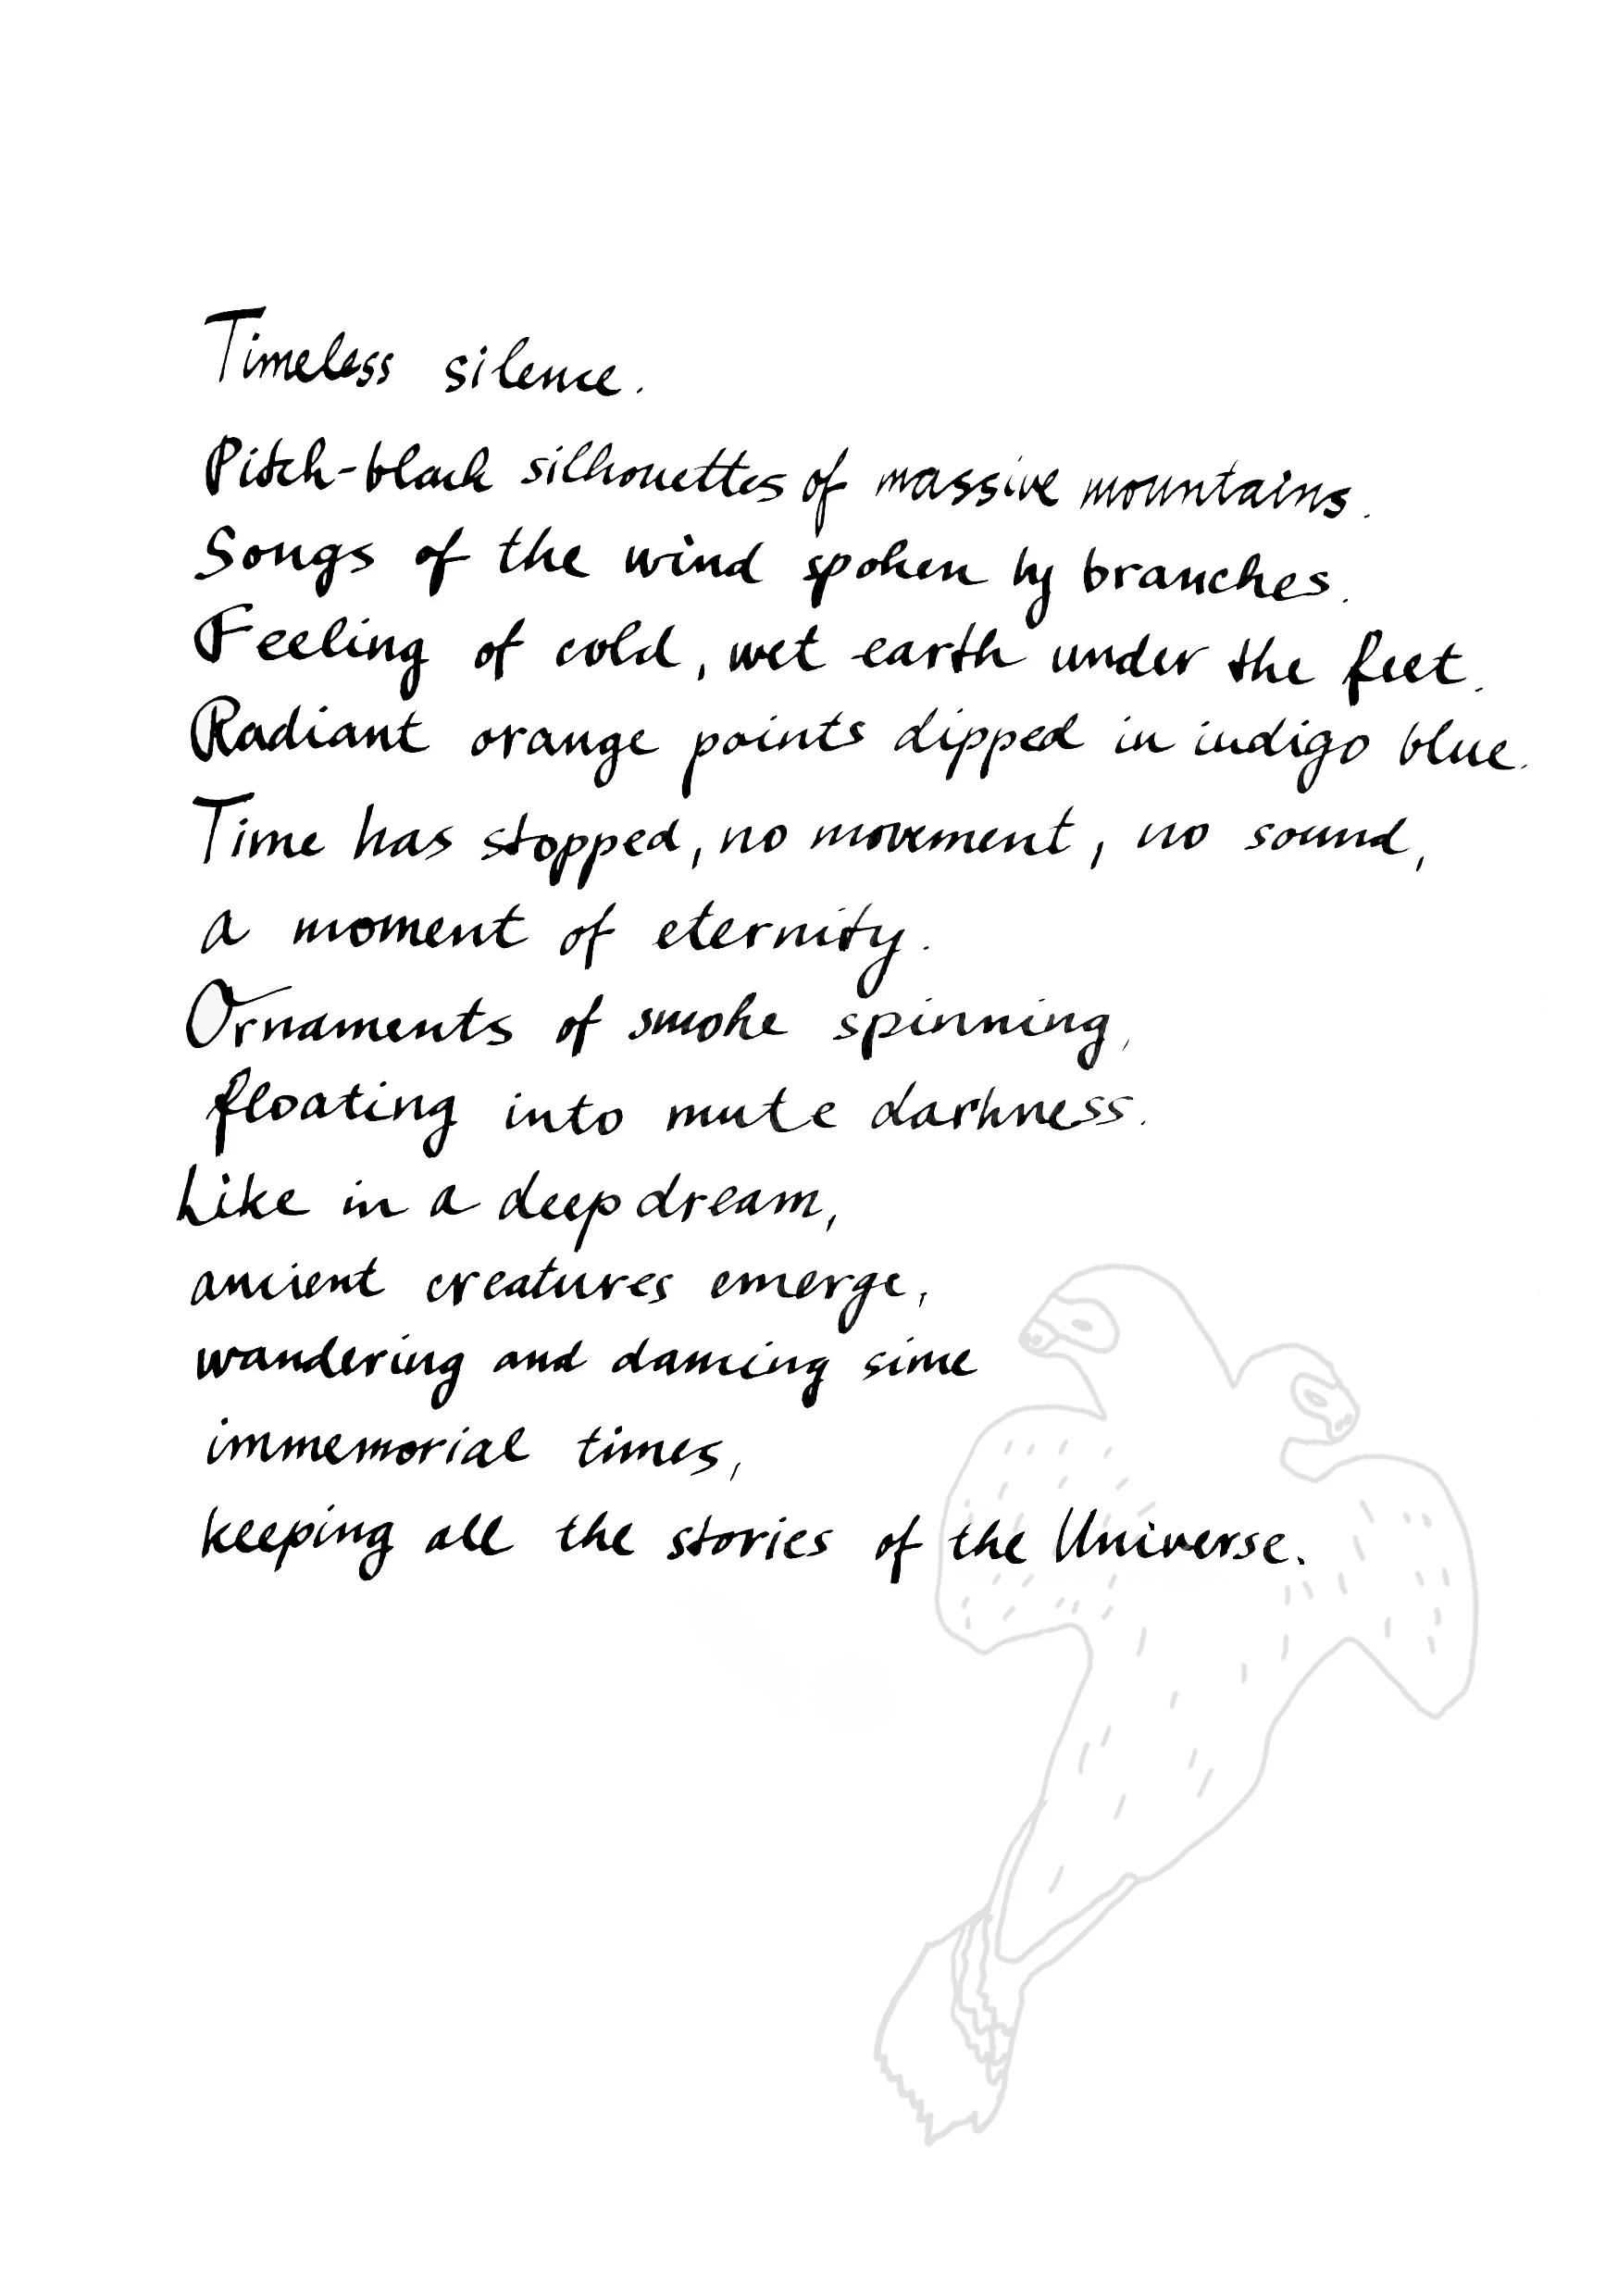 Timeless silence.
Pitch-black silhouettes of massive mountains.
Songs of the wind spoken by branches.
Feeling of cold, wet earth under the feet.
Radiant orange points dipped in indigo blue.
Time has stopped, no movement, no sound,
a moment of eternity.
Ornaments of smoke spinning,
floating into mute darkness.
Like in a deep dream,
ancient creatures emerge,
wandering and dancing since
immemorial times,
keeping all the stories of the Universe.